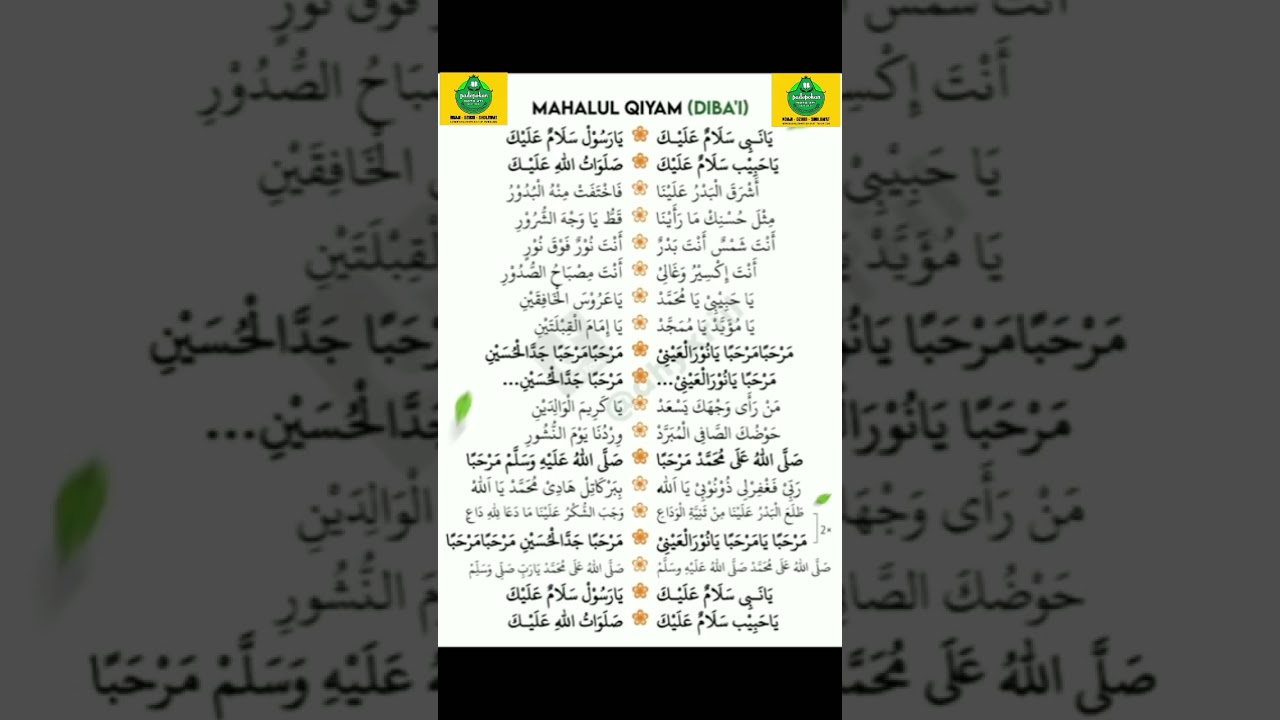 MAHALUL QIYAM (DIBA'I)
يَانَبِى سَلَامٌ عَلَيْكَ يَارَسُوْلْ سَلَامٌ عَلَيْكَ
يَاحَبِيْب سَلَامٌ عَلَيْكَ صَلَوَاتُ اللهِ عَلَيْكَ
أَشْرَقَ الْبَدْرُ عَلَيْنَا فَاخْتَفَتْ مِنْهُ الْبُدُوْرُ
مِثْلَ حُسْنِكْ مَا رَأَيْنَا قَطُّ يَا وَجْهَ السُّرُوْرِ
أَنْتَ شَمْسٌ أَنْتَ بَدْرٌ أَنْتَ نُوْرٌ فَوْقَ نُوْرٍ
أَنْتَ إِكْسِيْرُ وَغَالِيْ أَنْتَ مِصْبَاحُ الصُّدُوْرِ
يَا حَبِيْبِيْ يَا مُحَمَّدْ يَاعَرُوْسَ الْخَافِقَيْنِ
يَا مُؤَيَّدْ يَا مُمَجَّدْ يَا إِمَامَ الْقِبْلَتَيْنِ
مَرْحَبًامَرْحَبًا يَانُوْرَالْعَيْنِيْ مَرْحَبًامَرْحَبًا جَدَّالْحُسَيْنِ
مَرْحَبًا يَانُوْرَالْعَيْنِيْ... مَرْحَبًا جَدَّالْحُسَيْنِ...
مَنْ رَأَى وَجْهَكَ يَسْعَدْ يَا كَرِيمَ الْوَالِدَيْنِ
حَوْضُكَ الصَّافِى الْمُبَرَّدْ وِرْدُنَا يَوْمَ النُّشُورِ
صَلَّى اللهُ عَلَى مُحَمَّدْ مَرْحَبًا صَلَّى اللهُ عَلَيْهِ وَسَلَّمْ مَرْحَبًا
رَبِّيْ فَغْفِرْلِى ذُنُوْبِيْ يَا اَلله بِبَرْكَاتِلْ هَادِىْ مُحَمَّدْ يَا اَللهْ
طَلَعَ الْبَدْرُ عَلَيْنَا مِنْ ثَنِيَّةِ الْوَدَاعِ وَجَبَ الشُّكْرُ عَلَيْنَا مَا دَعَا لِلهِ دَاعِ
2×
مَرْحَبًا يَامَرْحَبًا يَانُوْرَالْعَيْنِيْ مَرْحَبًا جَدَّالْحُسَيْنِ مَرْحَبًامَرْحَبًا
صَلَّى اللهُ عَلَى مُحَمَّدْ صَلَّى اللهُ عَلَيْهِ وسَلَّمْ صَلَّى اللهُ عَلَى مُحَمَّدْ يَارَبِّ صَلِّ وَسَلِّمْ
يَانَبِى سَلَامٌ عَلَيْكَ يَارَسُوْلْ سَلَامٌ عَلَيْكَ
يَاحَبِيْب سَلَامٌ عَلَيْكَ صَلَوَاتُ اللهِ عَلَيْكَ